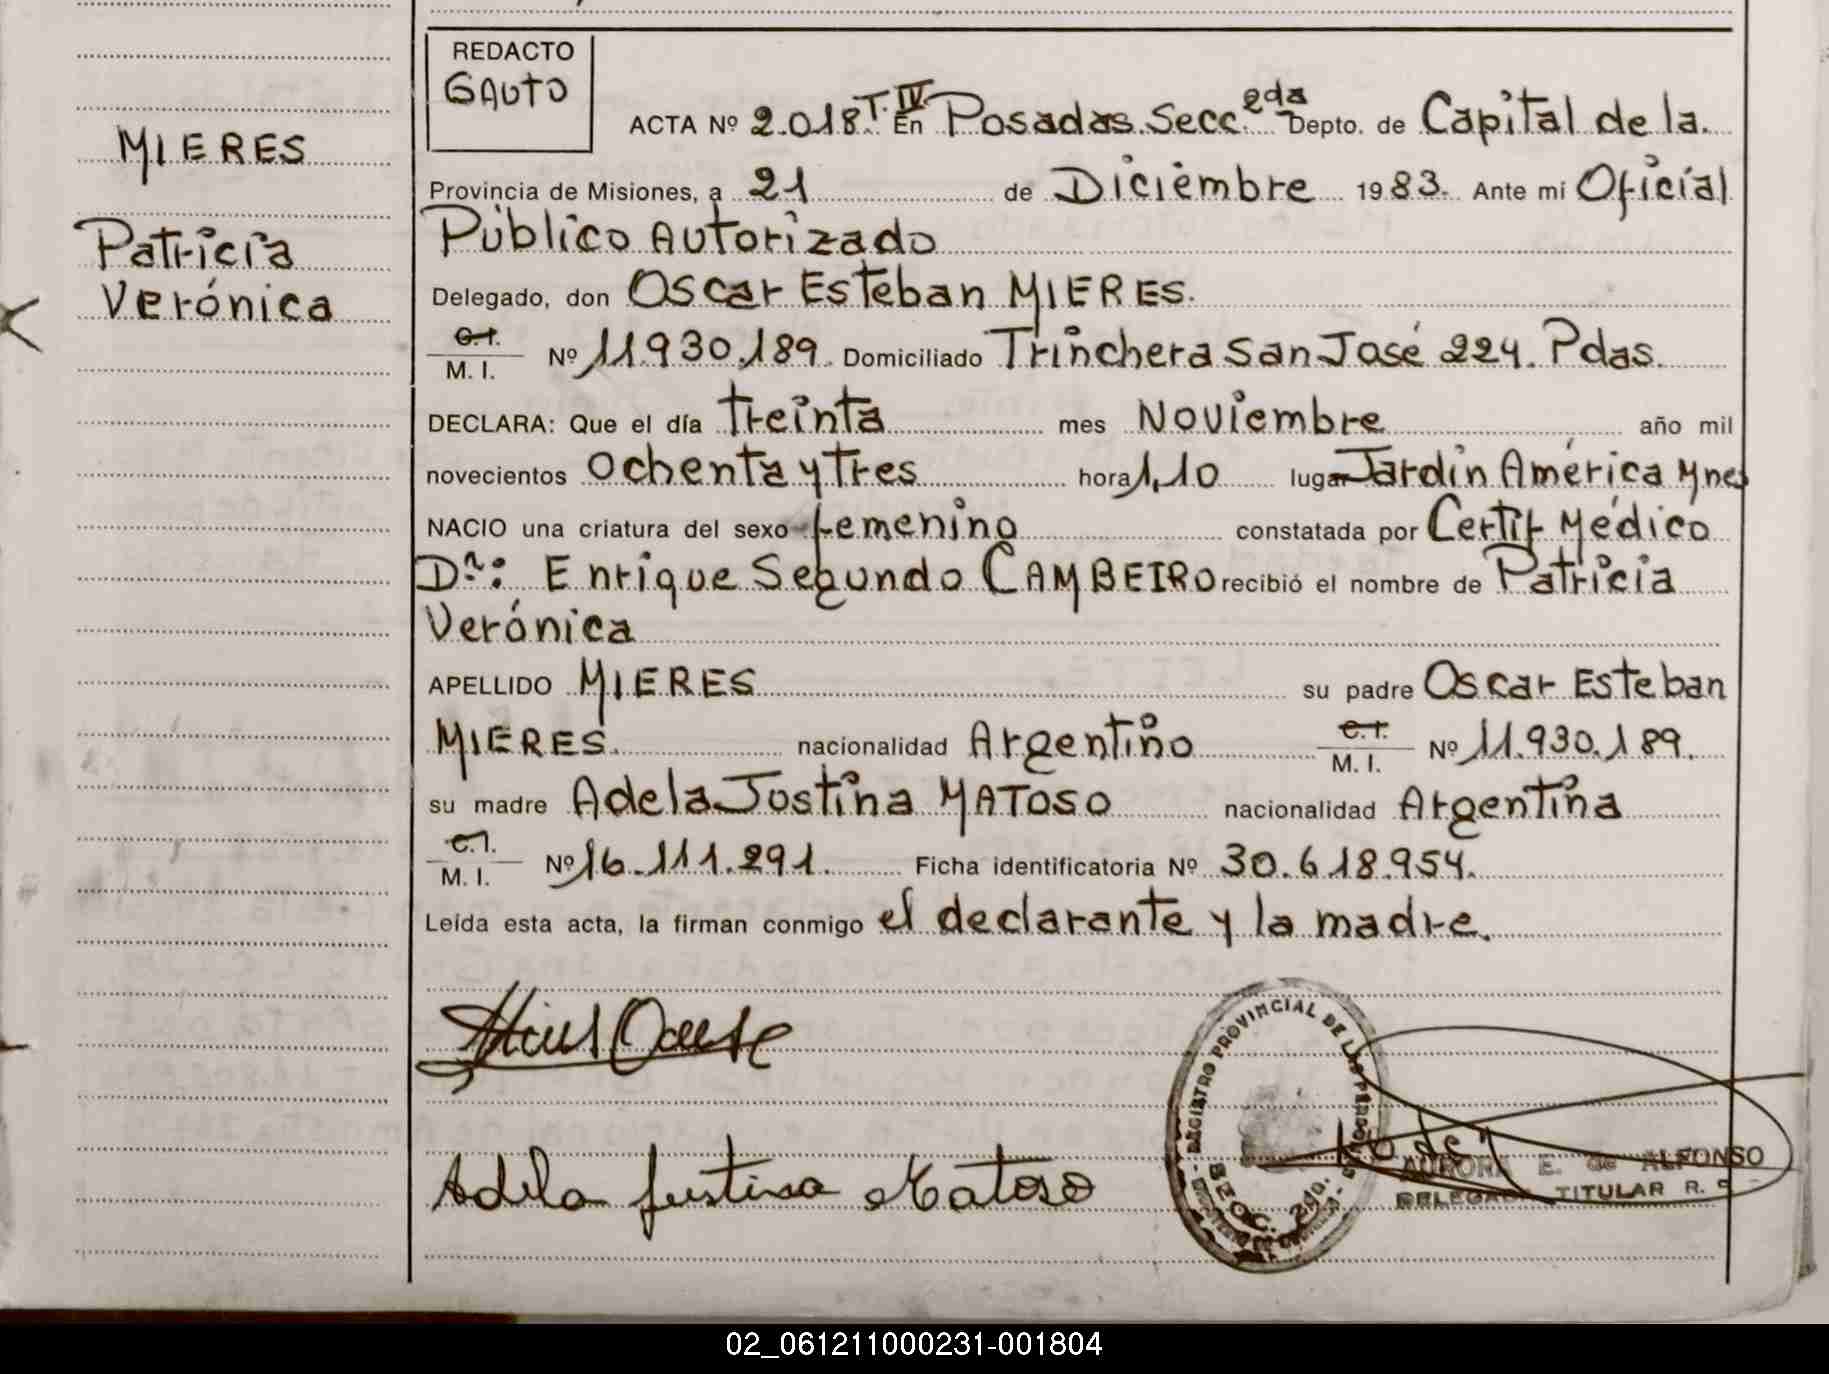 REDACTO
GAUTO
MIERES
Patricia
Verónica
ACTA Nº 2.018 T. IV En Posadas. Secc. 2da Depto. de Capital de la
Provincia de Misiones, a 21 de Diciembre 1983. Ante mi Oficial
Público Autorizado
Delegado, don Oscar Esteban MIERES.
C.I.
M. I. Nº 11.930.189. Domiciliado Trinchera San José 224. Pdas.
DECLARA: Que el día treinta mes Noviembre año mil
novecientos Ochenta y Tres hora 1,10 lugar Jardín América Mnes
NACIO una criatura del sexo femenino constatada por Certif Médico
Dr.: Enrique Segundo CAMBEIRO recibió el nombre de Patricia
Verónica
APELLIDO MIERES su padre Oscar Esteban
MIERES. nacionalidad Argentino C.I. M. I. Nº 11.930.189.
su madre Adela Justina MATOSO nacionalidad Argentina
C.I.
M. I. Nº 16.111.291. Ficha identificatoria Nº 30.618.954.
Leída esta acta, la firman conmigo el declarante y la madre.
REGISTRO PROVINCIAL DE LAS PERSONAS
SECC. 2da.
Adela Justina Matoso
AURORA E. de ALFONSO
DELEGADA TITULAR R. P.
02_061211000231-001804